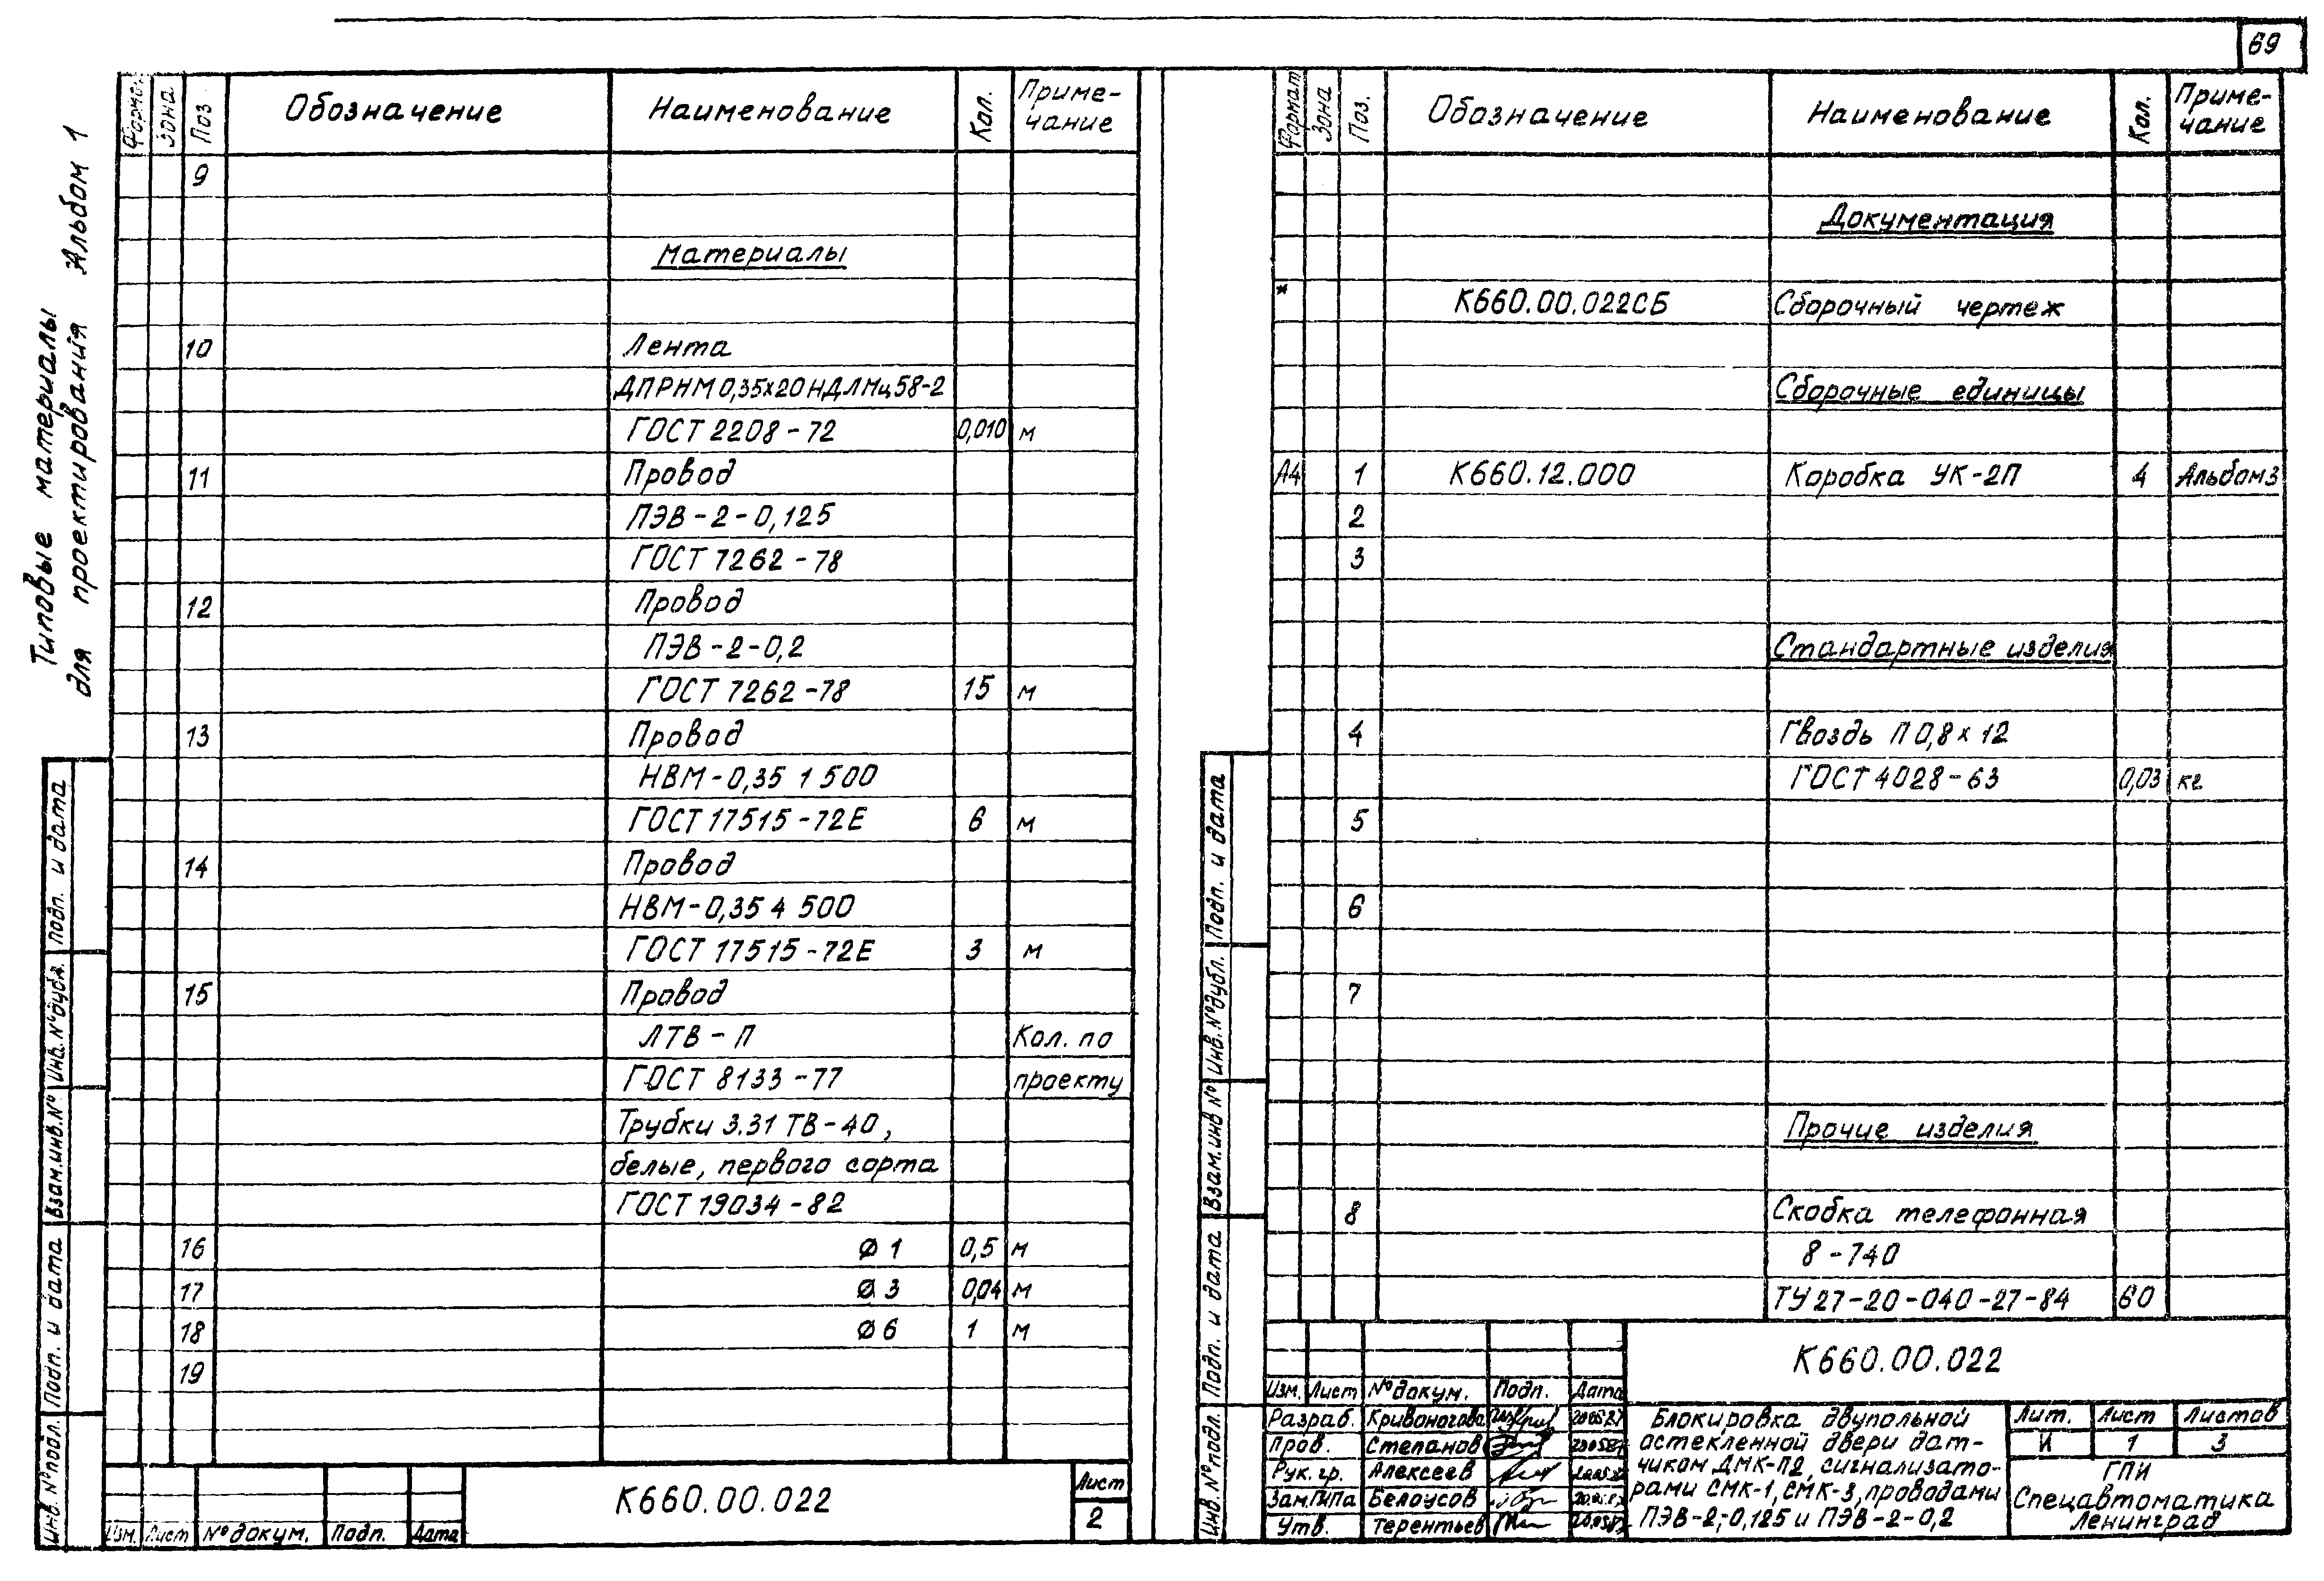 69
Типовые материалы
для проектирования Альбом 1
Формат Зона Поз Обозначение Наименование Кол. Приме-
чание
9
Материалы
10 Лента
ДПРНМ 0,35х20 НДЛМц 58-2
ГОСТ 2208-72 0,010 м
11 Провод
ПЭВ-2-0,125
ГОСТ 7262-78
12 Провод
ПЭВ-2-0,2
ГОСТ 7262-78 15 м
13 Провод
НВМ-0,35 1 500
ГОСТ 17515-72Е 6 м
14 Провод
НВМ-0,35 4 500
ГОСТ 17515-72Е 3 м
15 Провод
ЛТВ-П Кол. по
ГОСТ 8133-77 проекту
Трубки 3.31 ТВ-40,
белые, первого сорта
ГОСТ 19034-82
16 Ø 1 0,5 м
17 Ø 3 0,04 м
18 Ø 6 1 м
19
Инв. № подл. Подп. и дата Взам. инв. № Инв. № дубл. Подп. и дата
Изм. Лист № докум. Подп. Дата
К660.00.022
Лист
2
Формат Зона Поз. Обозначение Наименование Кол. Приме-
чание
Документация
* К660.00.022СБ Сборочный чертеж
Сборочные единицы
А4 1 К660.12.000 Коробка УК-2П 4 Альбом 3
2
3
Стандартные изделия
4 Гвоздь П 0,8 х 12
ГОСТ 4028-63 0,03 кг
5
6
7
Прочие изделия
8 Скобка телефонная
8-740
ТУ 27-20-040-27-84 60
Инв. № подл. Подп. и дата Взам. инв № Инв. № дубл. Подп. и дата
К660.00.022
Изм. Лист № докум. Подп. Дата
Разраб. Кривоногова
Пров. Степанов
Рук. гр. Алексеев
Зам. ГИПа Белоусов
Утв. Терентьев
Блокировка двупольной
остекленной двери дат-
чиком ДМК-П2, сигнализато-
рами СМК-1, СМК-3, проводами
ПЭВ-2-0,125 и ПЭВ-2-0,2
Лит. Лист Листов
И 1 3
ГПИ
Спецавтоматика
Ленинград